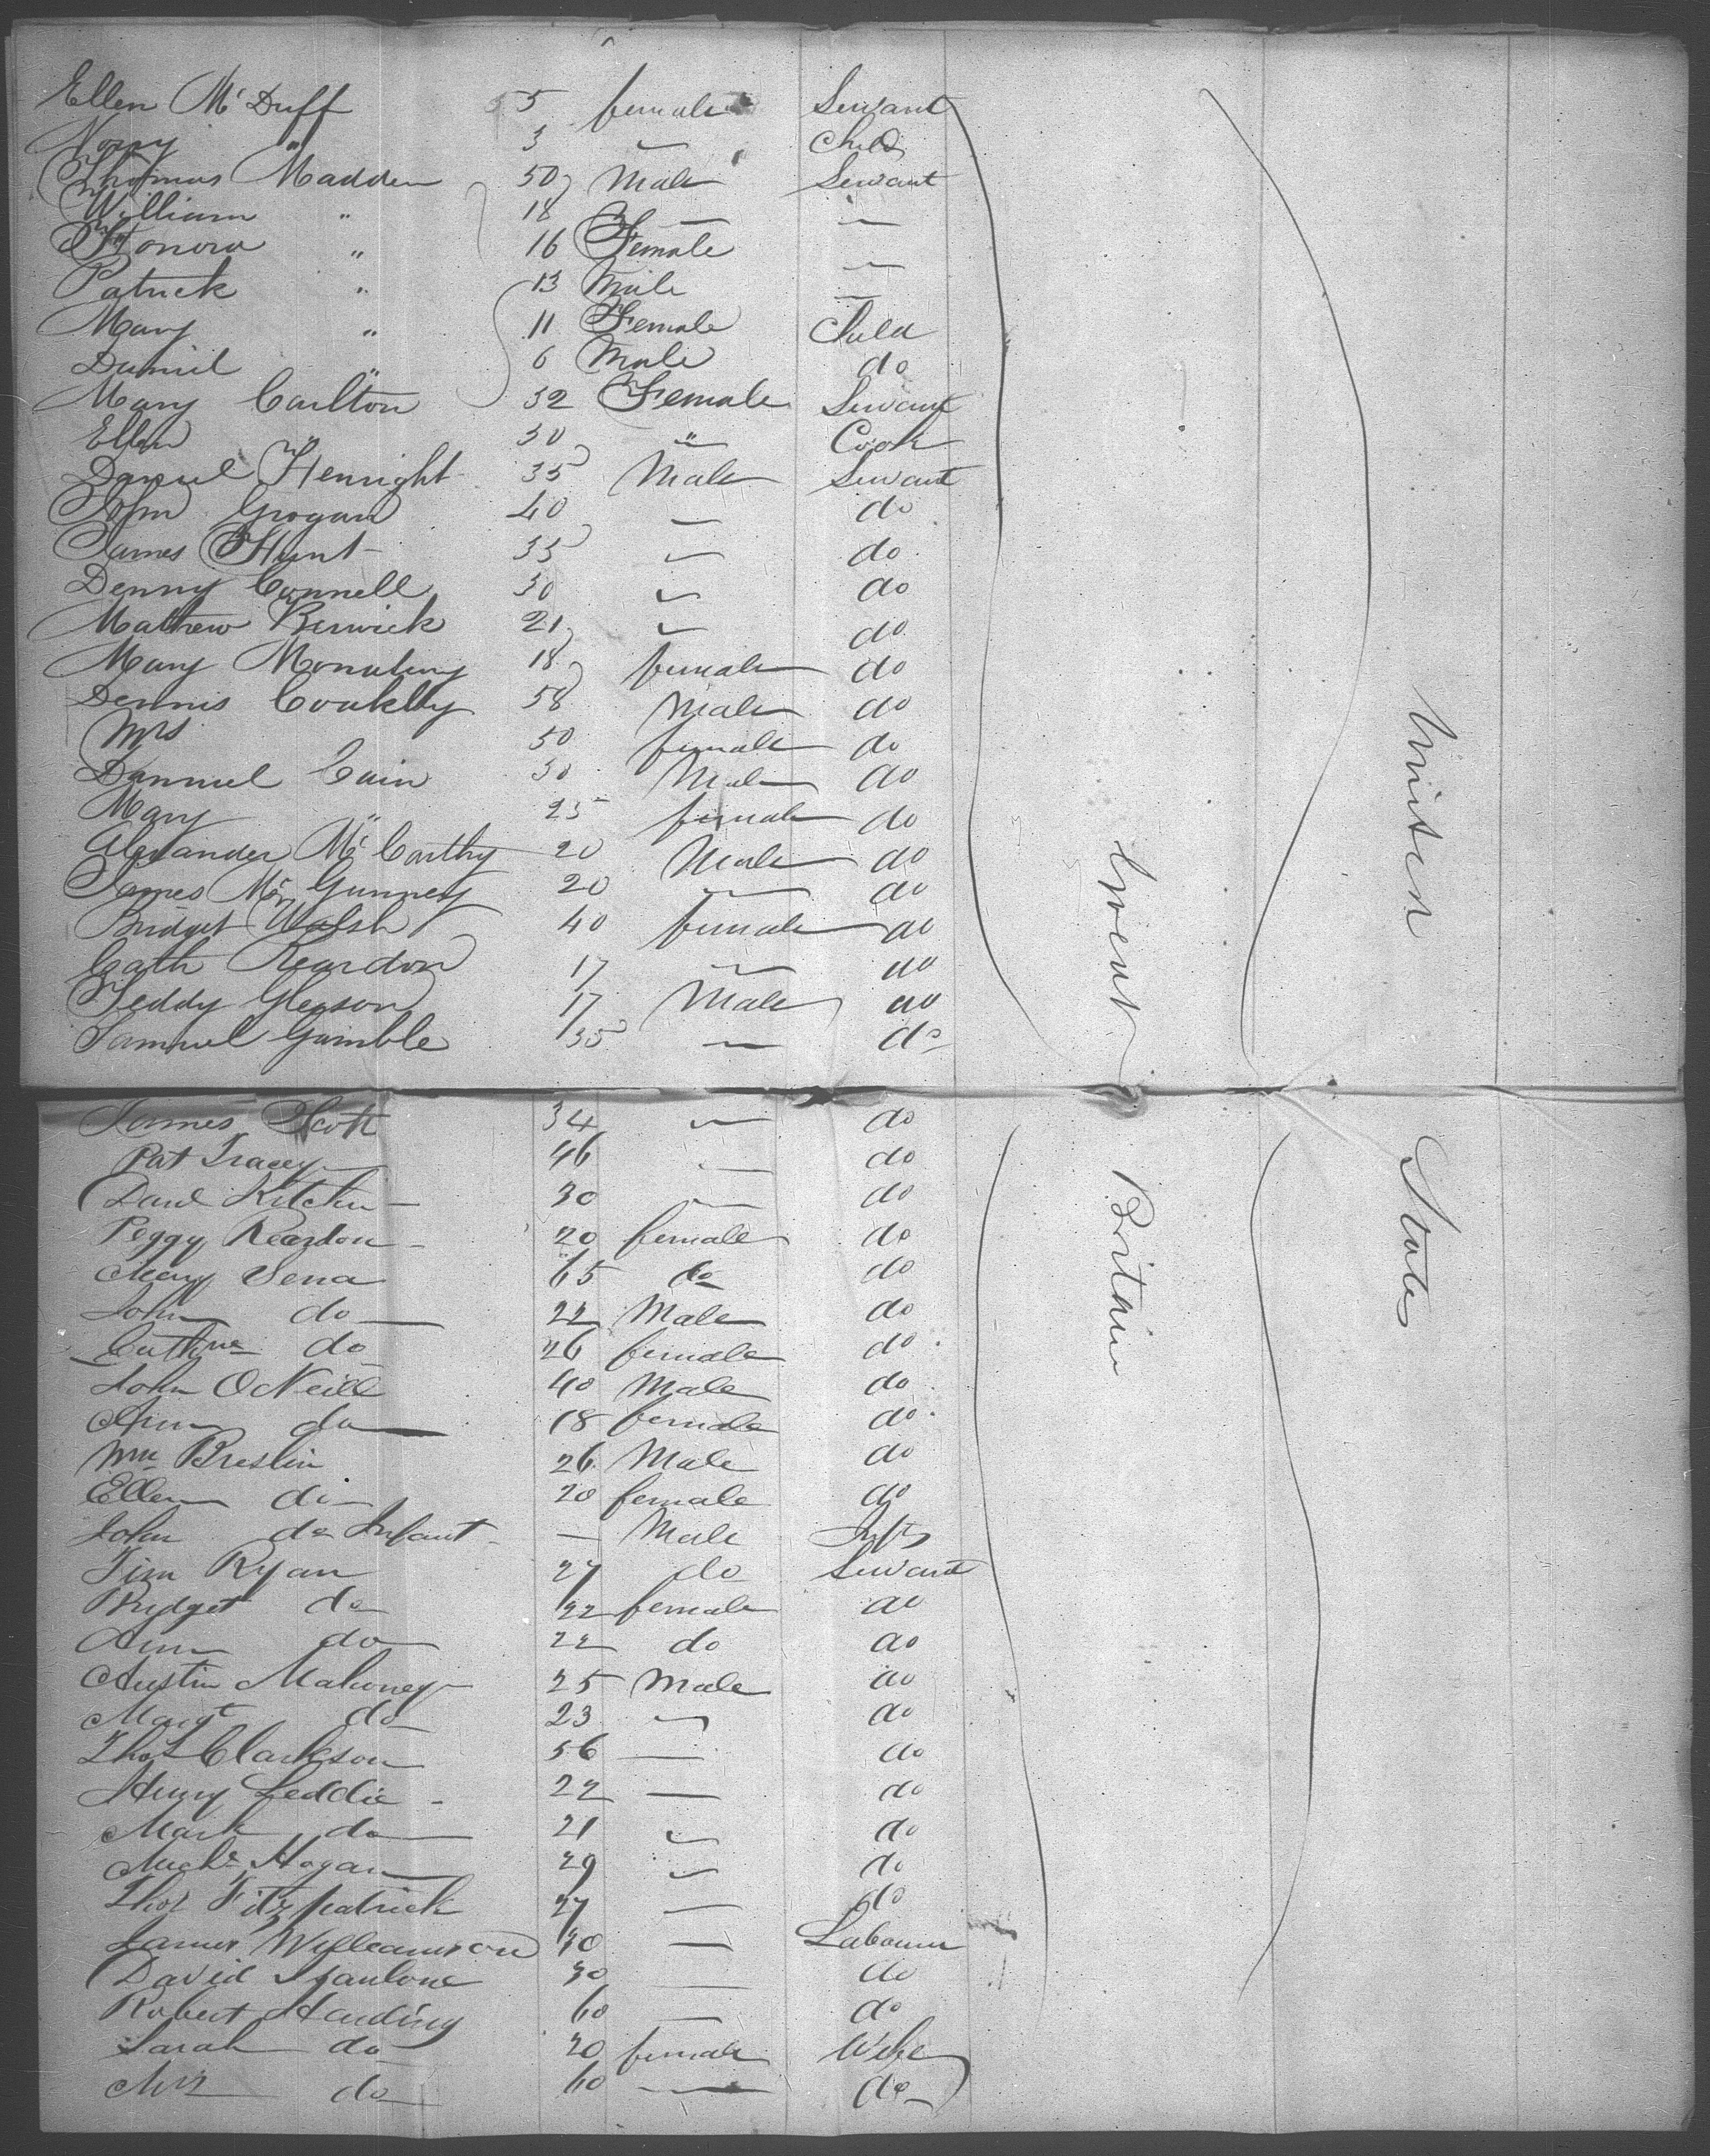 Ellen McDuff 55 female Servant
Norry " 3 — Child
Thomas Madden 50 Male Servant
William " 18 — —
Honora " 16 Female —
Patrick " 13 Male —
Mary " 11 Female Child
Daniel " 6 Male do
Mary Carlton 32 Female Servant
Ellen " 30 " Cook
Daniel Henright 35 Male Servant
John Grogan 40 — do
James Hunt 35 — do
Denny Connell 30 — do
Mathew Berwick 21 — do
Mary 18 female do
Dennis Coaklly 58 Male do
Mrs 50 female do
Danniel Cain 30 Male do
Mary " 25 female do
Alexander McCarthy 20 Male do
James Mc Gunney 20 — do
Bridget Walsh 40 female do
Cath Reardon 17 — do
Teddy Gleason 17 Male do
Samuel Gamble 35 — do
Great
United
James Scott 34 — do
Pat Tracey 46 — do
Danl Kitchin 30 — do
Peggy Reardon 20 female do
Mary Sena 65 do do
John do 22 Male do
Cathne do 26 female do
John O'Neill 40 Male do
Ann do 18 female do
Wm Breslin 26 Male do
Ellen do 20 female do
John do Infant — Male Inft
Tim Ryan 27 do Servant
Bridget do 22 female do
Ann do 22 do do
Austin Mahoney 25 Male do
Margt do 23 — do
Thos Clarkson 56 — do
Henry Leddie 22 — do
Mark do 21 — do
Michl Hogan 29 — do
Thos Fitzpatrick 27 — do
James Williamson 30 — Labourer
David 30 — do
Robert Harding 60 — do
Sarah do 20 female Wife
Mrs do 60 — do
Britain
States